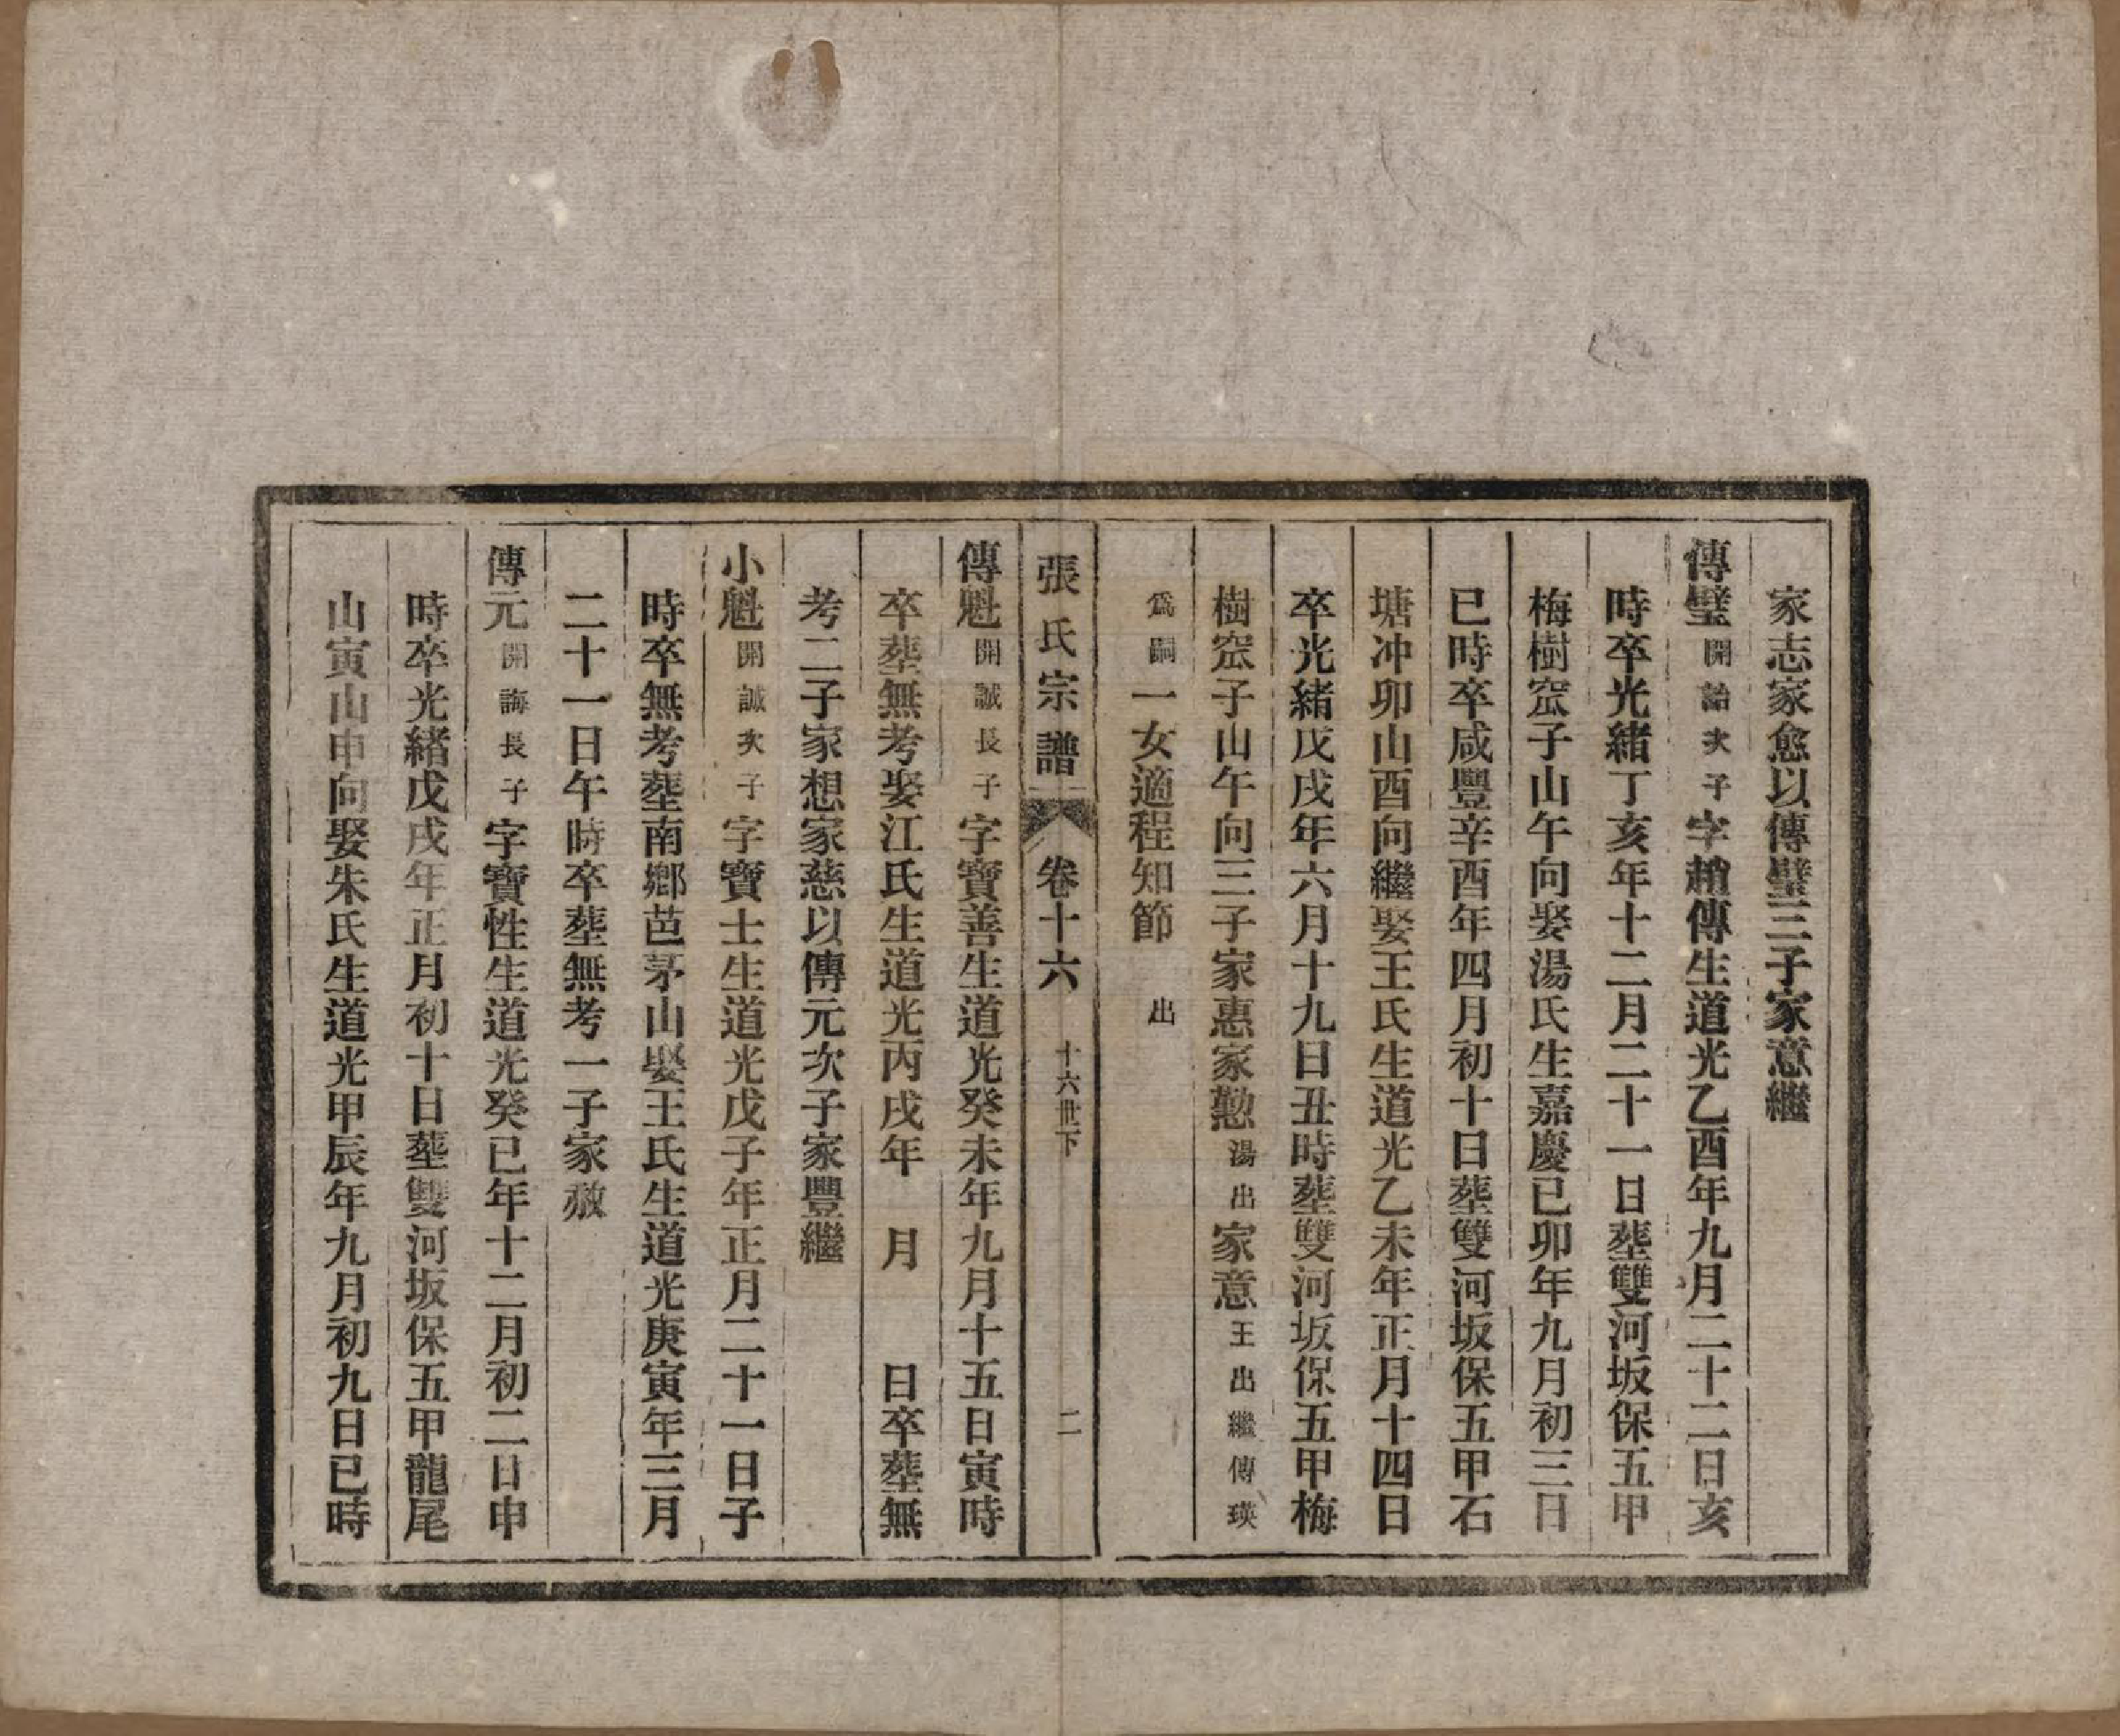 家志家愈以傳璧三子家意繼
傳璧開詒次子字趙傳生道光乙酉年九月二十二日亥
時卒光緒丁亥年十二月二十一日塟雙河坂保五甲
梅樹窊子山午向娶湯氏生嘉慶己卯年九月初三日
巳時卒咸豐辛酉年四月初十日塟雙河坂保五甲石
塘冲卯山酉向繼娶王氏生道光乙未年正月十四日
卒光緒戊戌年六月十九日丑時塟雙河坂保五甲梅
樹窊子山午向三子家惠家懃湯出家意王出繼傳瑛
爲嗣一女適程知節 出
張氏宗譜 卷十六 十六世下 二
傳魁開誠長子字寶善生道光癸未年九月十五日寅時
卒塟無考娶江氏生道光丙戌年 月 日卒塟無
考二子家想家慈以傳元次子家豐繼
小魁開誠次子字寶士生道光戊子年正月二十一日子
時卒無考塟南鄉芭茅山娶王氏生道光庚寅年三月
二十一日午時卒塟無考一子家赦
傳元開誨長子字寶性生道光癸巳年十二月初二日申
時卒光緒戊戌年正月初十日塟雙河坂保五甲龍尾
山寅山申向娶朱氏生道光甲辰年九月初九日巳時